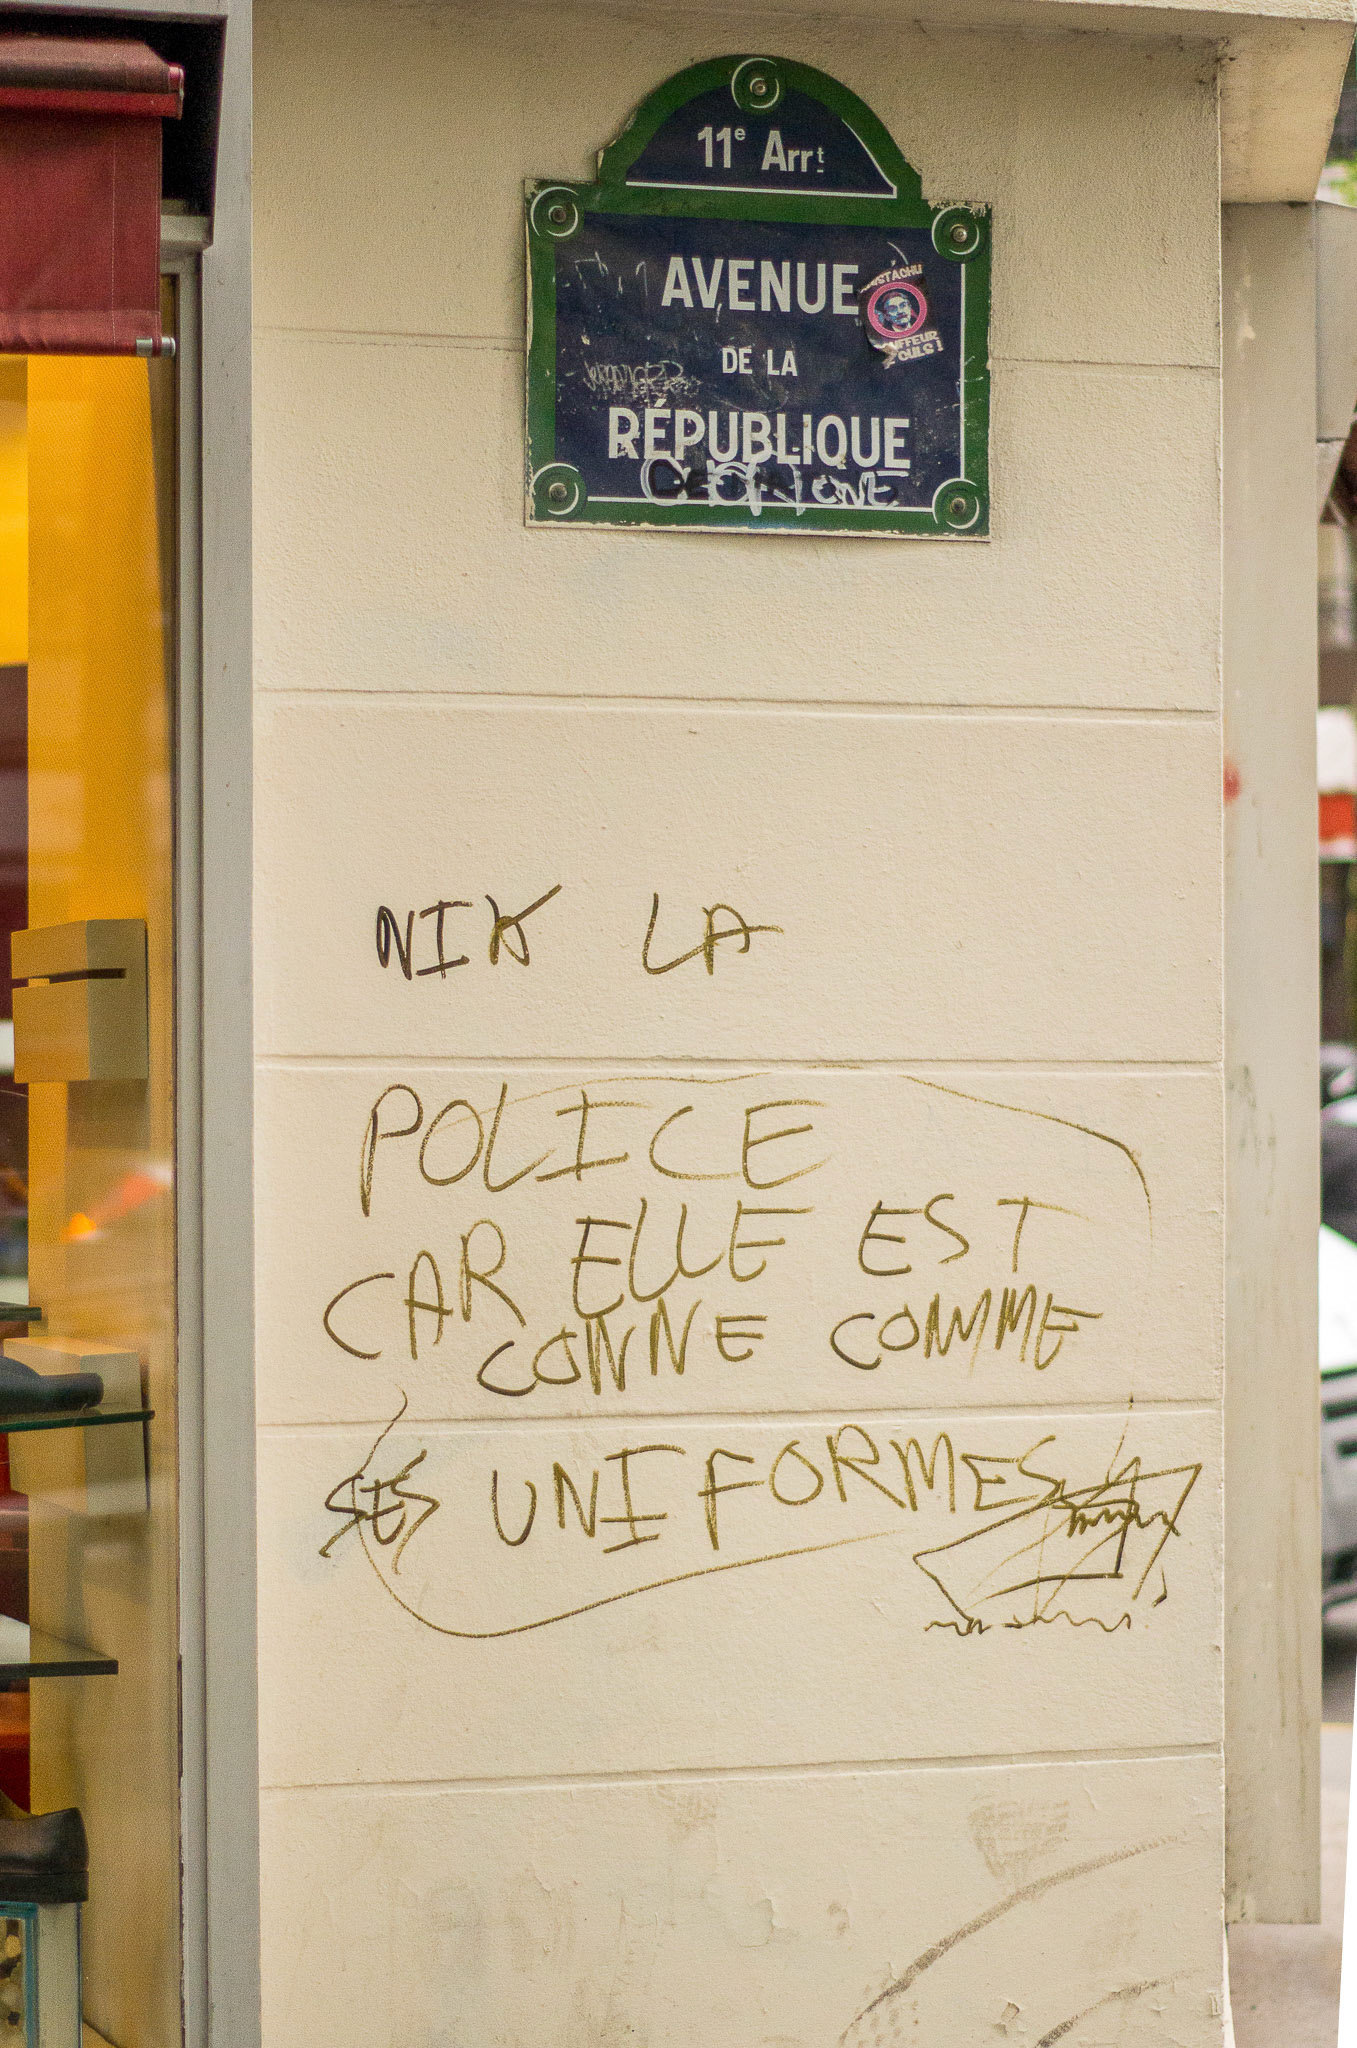 11e Arrt
AVENUE
DE LA
RÉPUBLIQUE
NIK LA
POLICE
CAR ELLE EST
CONNE COMME
SES UNIFORMES